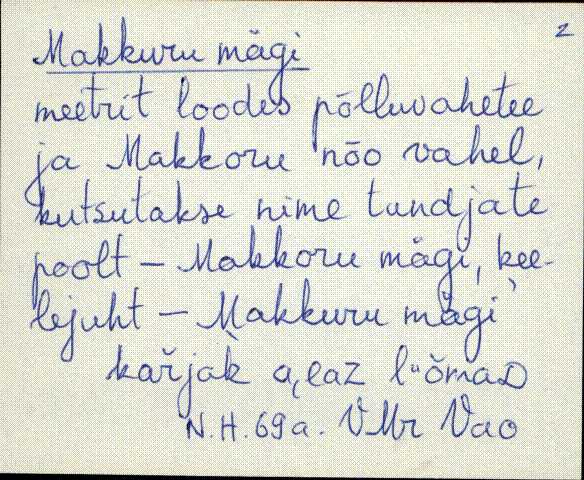 2
Makkuru mägi
meetrit loodes põlluvahetee
ja Makkoru nõo vahel,
kutsutakse nime tundjate
poolt – Makkoru mägi, kee-
lejuht – Makkuru mägi
karjàk a,eaz l"ŏmaD
N.H. 69 a. VMr Vao